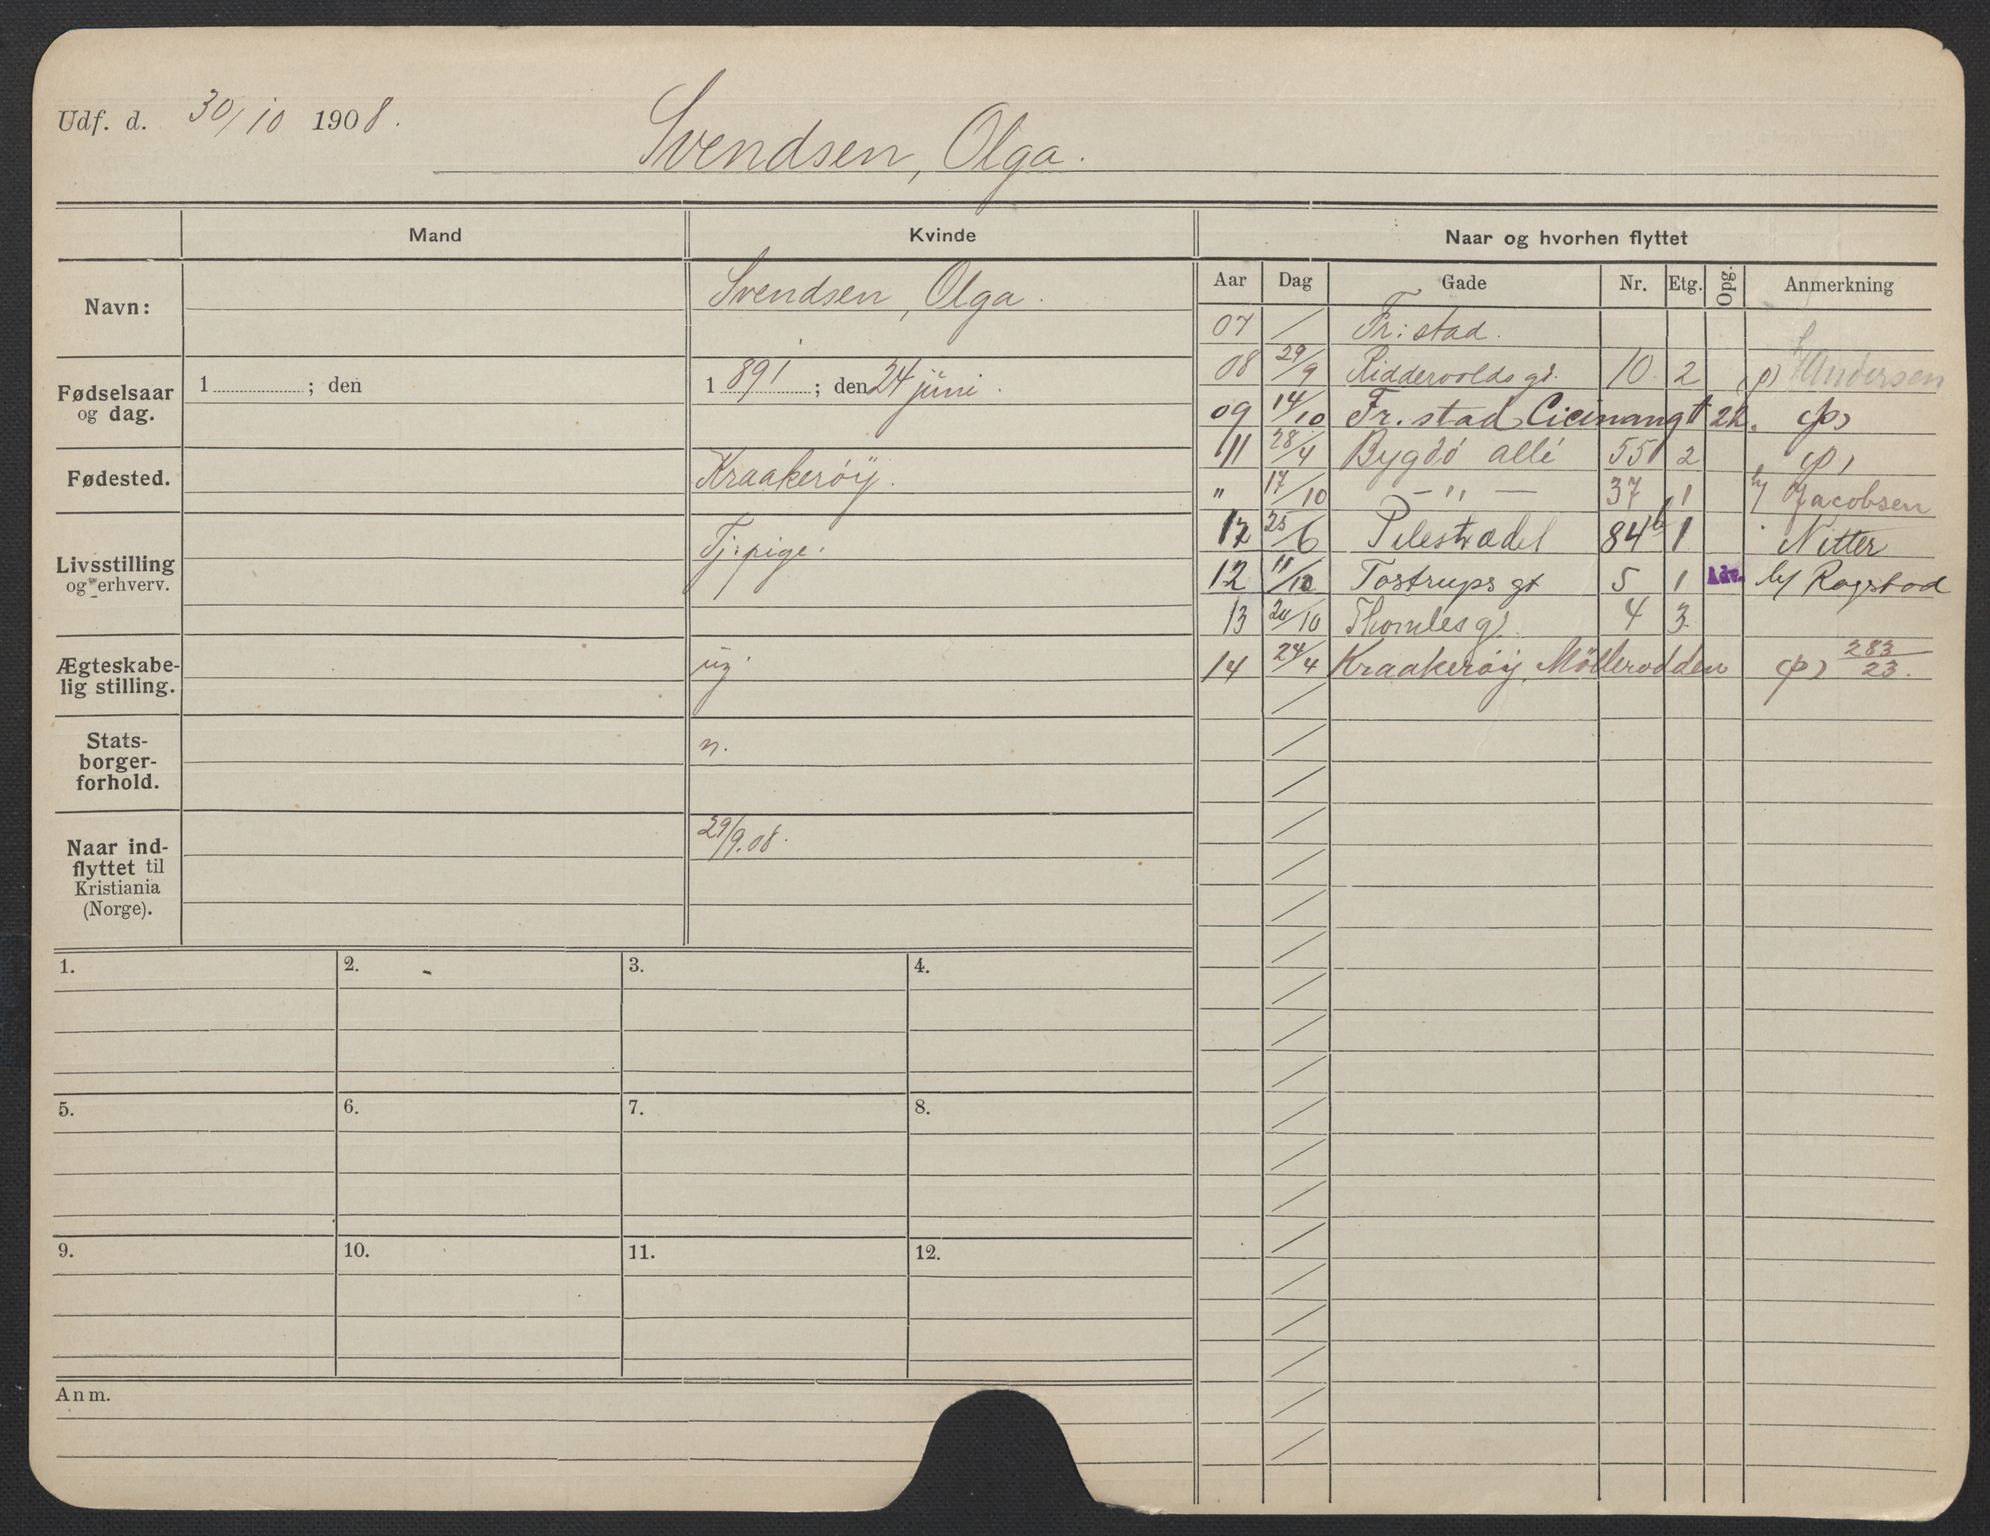 Udf. d. 30/10 1908.
Svendsen, Olga.
Mand Kvinde Naar og hvorhen flyttet
Aar Dag Gade Nr. Etg. Opg. Anmerkning
Navn: Svendsen, Olga.
Fødselsaar og dag. 1 ; den 1 891 ; den 24 juni.
Fødested. Kraakerøy.
Livsstilling og erhverv. Tj: pige.
Ægteskabe-
lig stilling. ug.
Stats-
borger-
forhold. n.
Naar ind-
flyttet til
Kristiania
(Norge). 29/9.08.
07 / Fr: stad.
08 29/9 Riddervolds gt. 10. 2 (p) h/ Andersen
09 14/10 Fr. stad 22. (p)
11 28/4 Bygdö allé 55 2 (p)
" 17/10 — " — 37 1 h/ Jacobsen
12 25/6 Pilestrædet 84b 1 Nitter
12 11/12 Tostrups gt 5 1 Adv. h/ Rogstad
13 20/10 Thomles gt. 4 3
14 24/4 Kraakerøy, Möllerodden (p) 283/23.
1. 2. 3. 4.
5. 6. 7. 8.
9. 10. 11. 12.
Anm.